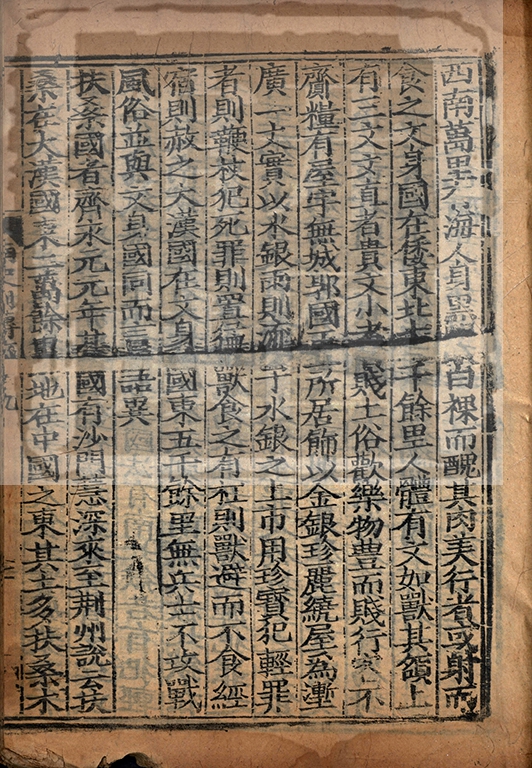 西南萬里有海人身黑眼白裸而醜其肉美行者或射而
食之文身國在倭東北七千餘里人體有文如獸其額上
有三文文直者貴文小者賤土俗歡樂物豊而賤行客不
齎糧有屋宇無城郭國王所居飾以金銀珍麗繞屋為塹
廣一丈實以水銀雨則流于水銀之上市用珍寶犯輕罪
者則鞭杖犯死罪則置猛獸食之有枉則獸避而不食經
宿則赦之大漢國在文身國東五千餘里無兵戈不攻戰
風俗並與文身國同而言語異
扶桑國者齊永元元年其國有沙門慧深來至荆州說云扶
桑在大漢國東二萬餘里地在中國之東其土多扶桑木